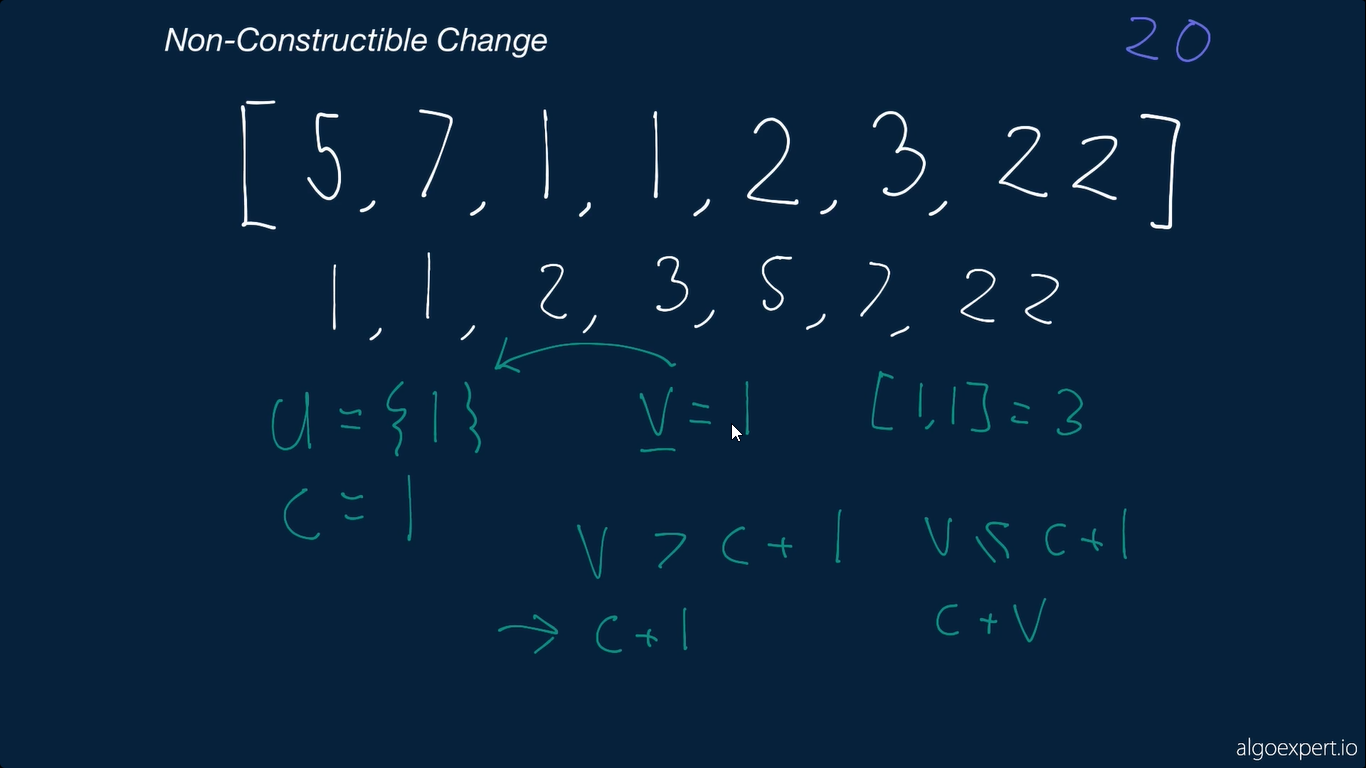 Non-Constructible Change 20
[5, 7, 1, 1, 2, 3, 22]
1, 1, 2, 3, 5, 7, 22
U = {1} V = 1 [1,1] = 3
C = 1
V > C + 1 V ≤ C + 1
→ C + 1 C + V
algoexpert.io